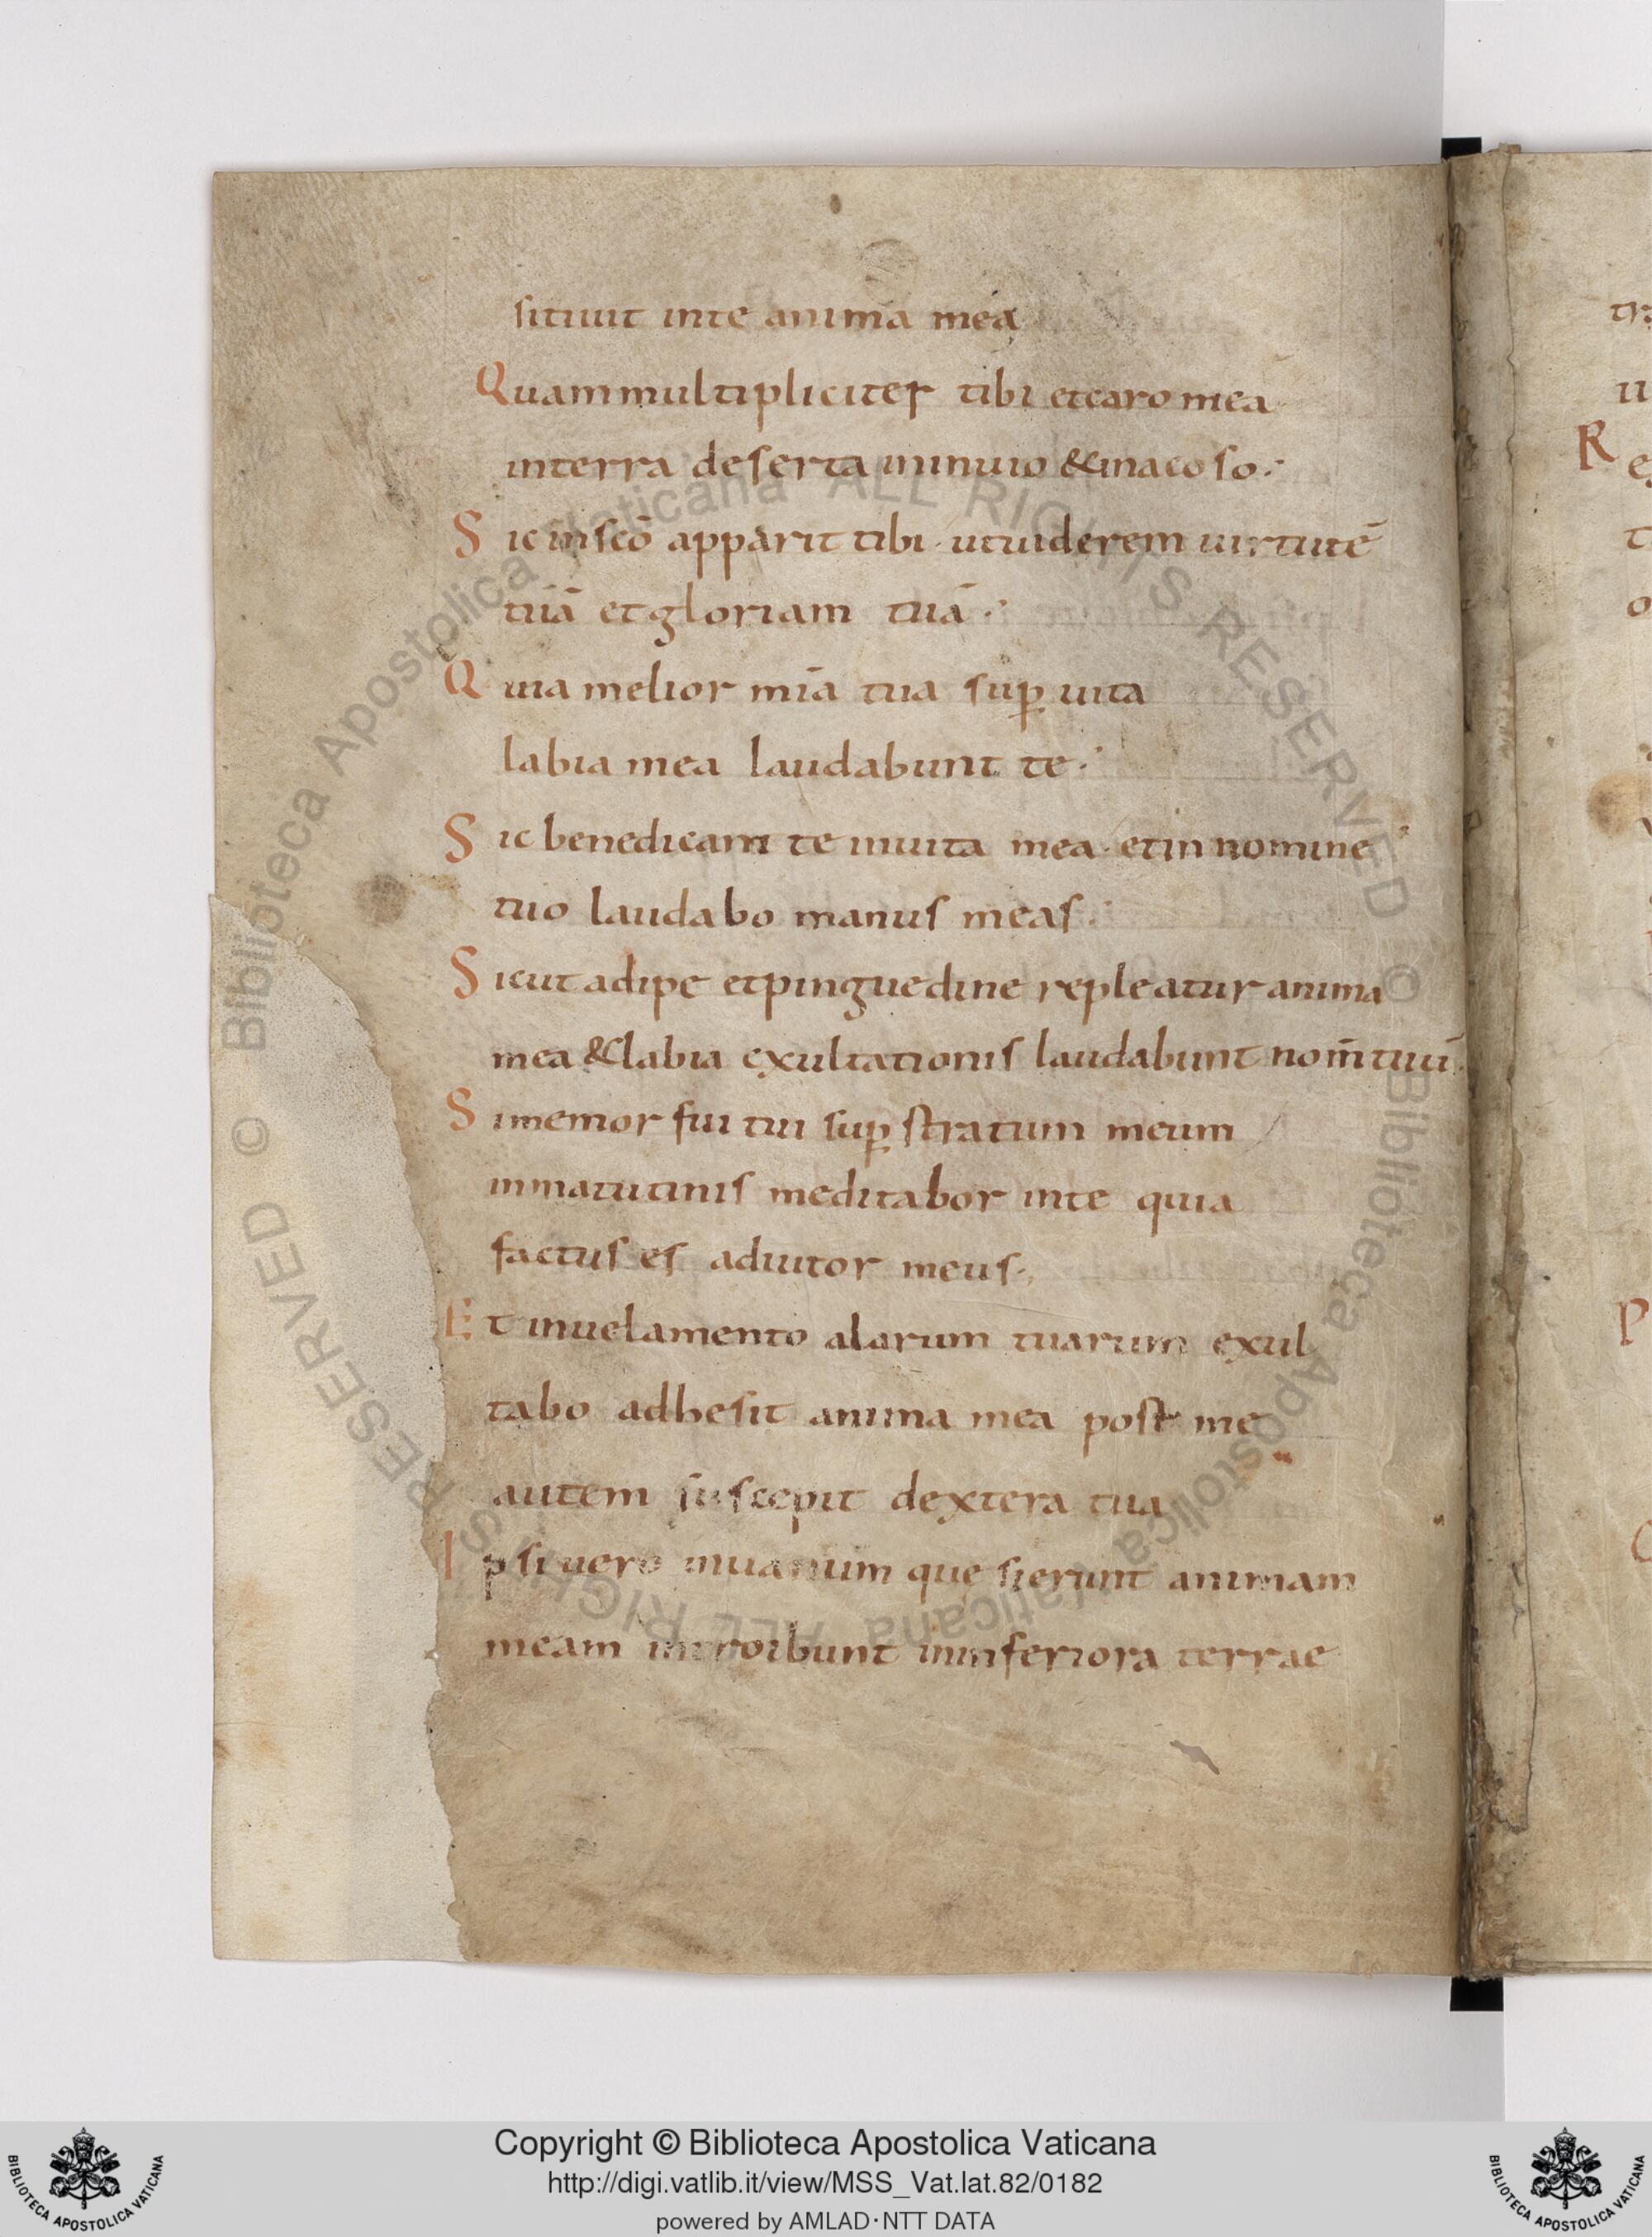 sitiuit inte anima mea
Quam multipliciter tibi etcaro mea
interra deserta ininuio &inacoso.
Sic inscō apparit tibi utuiderem uirtutē
tuā etgloriam tuā.
Quia melior mīa tua suꝑ uita
labia mea laudabunt te.
Sic benedicam te inuita mea etin nomine
tuo laudabo manus meas.
Sicut adipe etpinguedine repleatur anima
mea &labia exultationis laudabunt nom̄ tuū.
Simemor fui tui suꝑ stratum meum
inmatutinis meditabor inte quia
factus es adiutor meus.
Et inuelamento alarum tuarum exul
tabo adhesit anima mea post me
autem suscepit dextera tua
Ipsi uero inuanum quę sierunt animam
meam introibunt ininferiora terrae
Copyright © Biblioteca Apostolica Vaticana
http://digi.vatlib.it/view/MSS_Vat.lat.82/0182
powered by AMLAD·NTT DATA
BIBLIOTECA APOSTOLICA VATICANA
BIBLIOTECA APOSTOLICA VATICANA